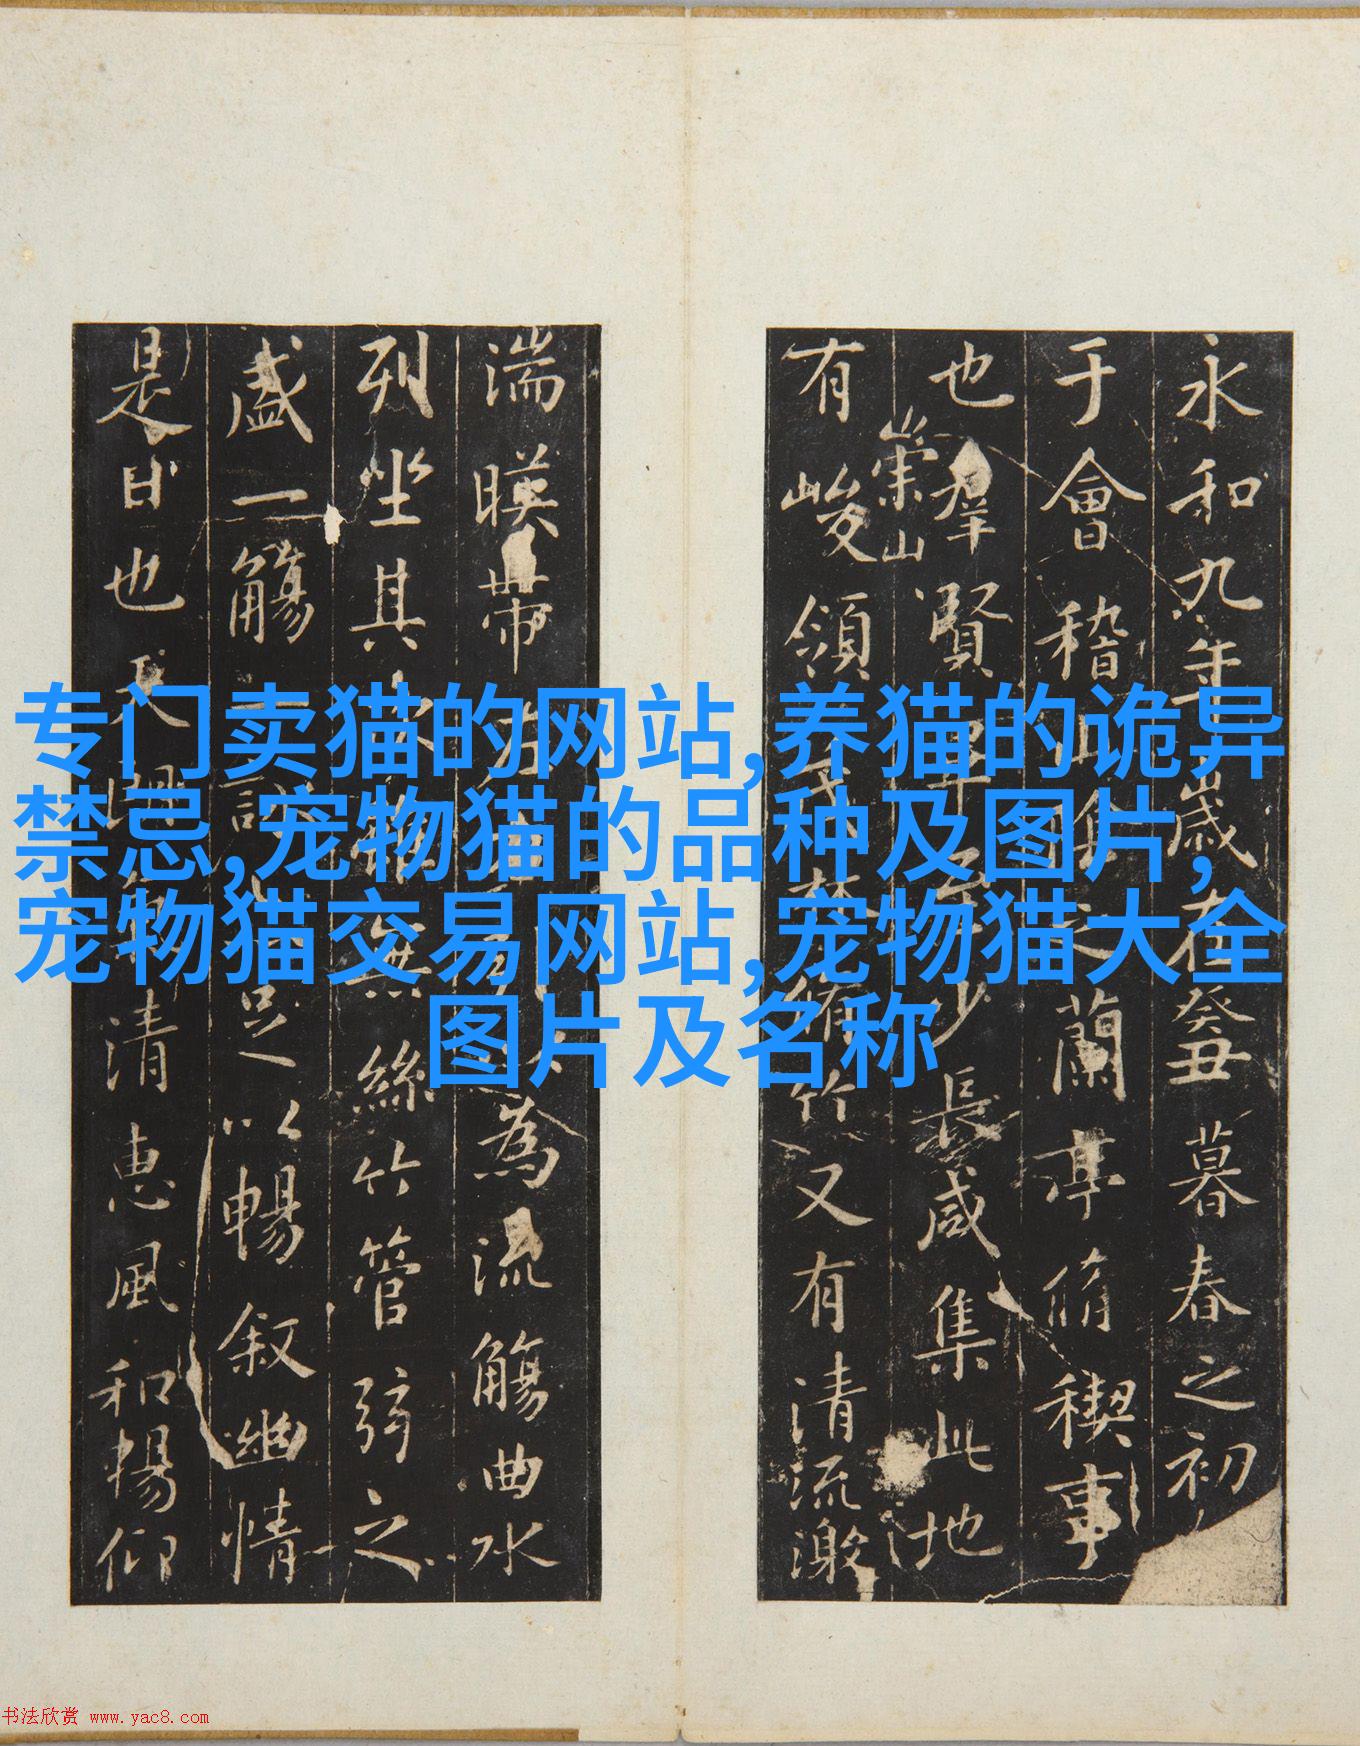 专门卖猫的网站,养猫的诡异
禁忌,宠物猫的品种及图片,
宠物猫交易网站,宠物猫大全
图片及名称
永和九年歲在癸丑暮春之初
于會稽山陰之蘭亭脩稧事
也羣賢畢至少長咸集此地
有崇山峻領茂林脩竹又有清流激
湍暎帶左右引以為流觴曲水
列坐其次雖無絲竹管弦之
盛一觴一詠亦足以暢叙幽情
是日也天朗氣清惠風和暢仰
书法欣赏 www.yac8.com